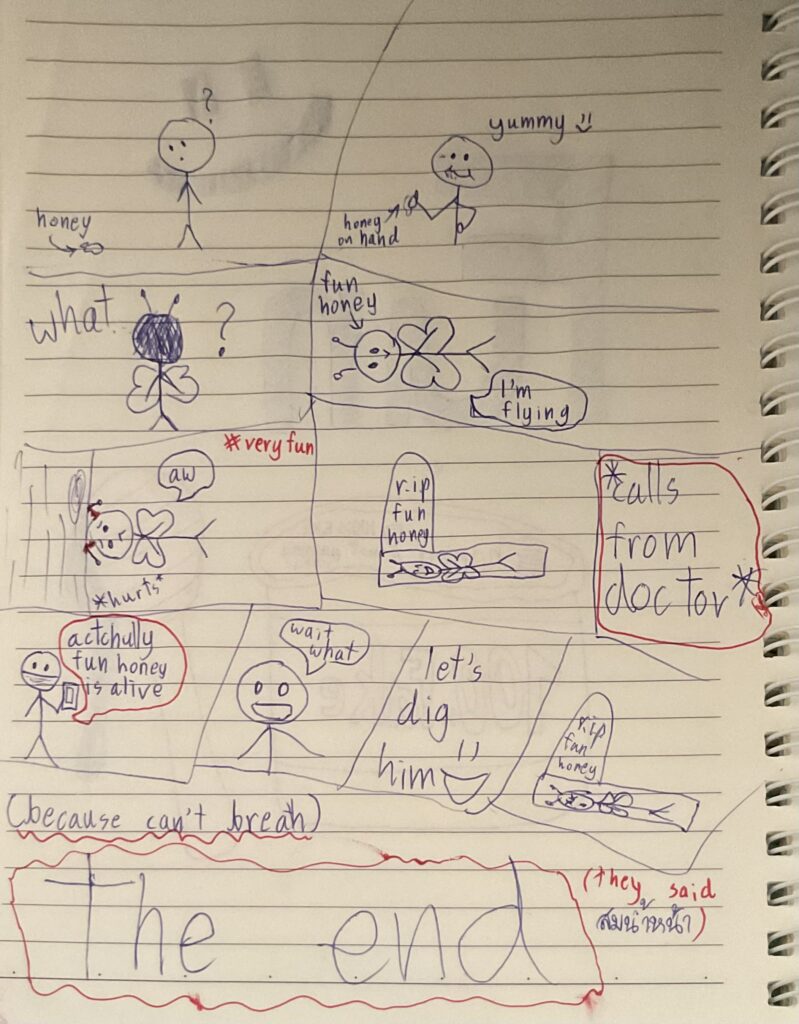 ?
honey
yummy :)
honey
on hand
what
?
fun
honey
I'm
flying
*very fun
aw
*hurts*
r.i.p
fun
honey
*calls
from
doctor*
actchully
fun honey
is alive
wait
what
let's
dig
him
r.i.p
fun
honey
(because can't breath)
The end
(they said
สมน้ำหน้า)